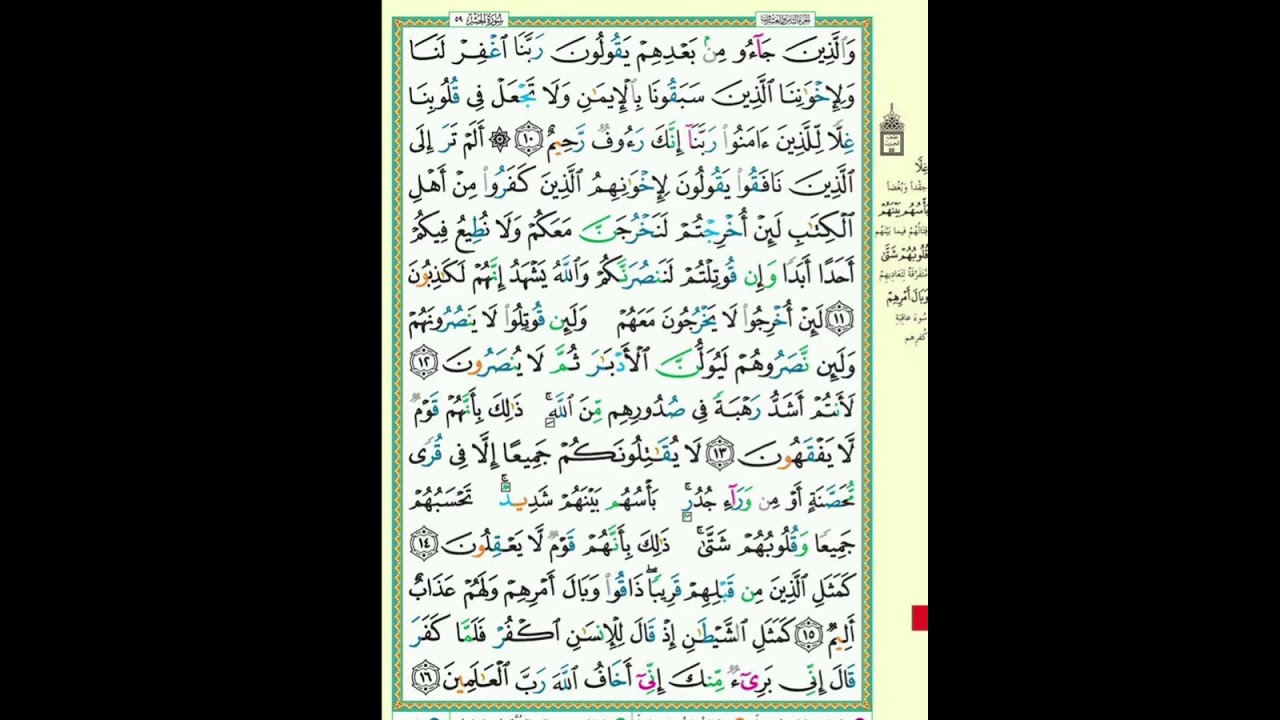 سُورَةُ الحَشْرِ ٥٩
وَٱلَّذِينَ جَآءُو مِنۢ بَعْدِهِمْ يَقُولُونَ رَبَّنَا ٱغْفِرْ لَنَا
وَلِإِخْوَٰنِنَا ٱلَّذِينَ سَبَقُونَا بِٱلْإِيمَٰنِ وَلَا تَجْعَلْ فِى قُلُوبِنَا
غِلًّا لِّلَّذِينَ ءَامَنُوا۟ رَبَّنَآ إِنَّكَ رَءُوفٌ رَّحِيمٌ ١٠ ۞ أَلَمْ تَرَ إِلَى
ٱلَّذِينَ نَافَقُوا۟ يَقُولُونَ لِإِخْوَٰنِهِمُ ٱلَّذِينَ كَفَرُوا۟ مِنْ أَهْلِ
ٱلْكِتَٰبِ لَئِنْ أُخْرِجْتُمْ لَنَخْرُجَنَّ مَعَكُمْ وَلَا نُطِيعُ فِيكُمْ
أَحَدًا أَبَدًا وَإِن قُوتِلْتُمْ لَنَنصُرَنَّكُمْ وَٱللَّهُ يَشْهَدُ إِنَّهُمْ لَكَٰذِبُونَ
١١ لَئِنْ أُخْرِجُوا۟ لَا يَخْرُجُونَ مَعَهُمْ وَلَئِن قُوتِلُوا۟ لَا يَنصُرُونَهُمْ
وَلَئِن نَّصَرُوهُمْ لَيُوَلُّنَّ ٱلْأَدْبَٰرَ ثُمَّ لَا يُنصَرُونَ ١٢
لَأَنتُمْ أَشَدُّ رَهْبَةً فِى صُدُورِهِم مِّنَ ٱللَّهِ ۚ ذَٰلِكَ بِأَنَّهُمْ قَوْمٌ
لَّا يَفْقَهُونَ ١٣ لَا يُقَٰتِلُونَكُمْ جَمِيعًا إِلَّا فِى قُرًى
مُّحَصَّنَةٍ أَوْ مِن وَرَآءِ جُدُرٍۭ ۚ بَأْسُهُم بَيْنَهُمْ شَدِيدٌ ۚ تَحْسَبُهُمْ
جَمِيعًا وَقُلُوبُهُمْ شَتَّىٰ ۚ ذَٰلِكَ بِأَنَّهُمْ قَوْمٌ لَّا يَعْقِلُونَ ١٤
كَمَثَلِ ٱلَّذِينَ مِن قَبْلِهِمْ قَرِيبًا ۖ ذَاقُوا۟ وَبَالَ أَمْرِهِمْ وَلَهُمْ عَذَابٌ
أَلِيمٌ ١٥ كَمَثَلِ ٱلشَّيْطَٰنِ إِذْ قَالَ لِلْإِنسَٰنِ ٱكْفُرْ فَلَمَّا كَفَرَ
قَالَ إِنِّى بَرِىٓءٌ مِّنكَ إِنِّىٓ أَخَافُ ٱللَّهَ رَبَّ ٱلْعَٰلَمِينَ ١٦
غِلًّا
حِقْدًا وَبُغْضًا
بَأْسُهُم بَيْنَهُمْ
قِتَالُهُمْ فِيمَا بَيْنَهُم
قُلُوبُهُمْ شَتَّى
مُتَفَرِّقَةٌ لِتَعَادِيهِمْ
وَبَالَ أَمْرِهِمْ
سُوءَ عَاقِبَةِ
كُفْرِهِم